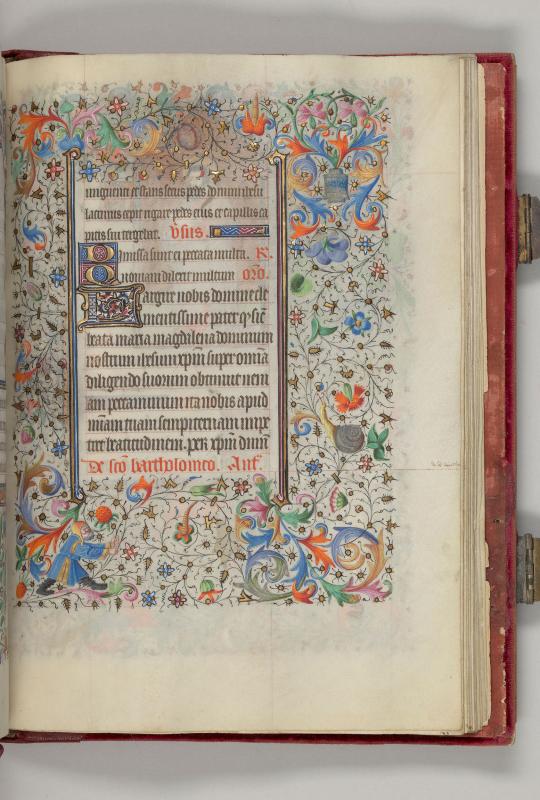 unguenti et stans secus pedes domini ihesu
lacrimis cepit rigare pedes eius et capillis ca
pitis sui tergebat. V̄sus.
Dimissa sunt ei peccata multa. R.
Quoniam dilexit multum oro̅.
Largire nobis domine cle
mentissime pater q̅ sic̅
beata maria magdalena dominum
nostrum ihesum xp̅m super omi̅a
diligendo suorum obtinuit veni
am peccatorum ita nobis apud
mi̅am tuam sempiternam impe
tret beatitudinem. per xp̅m dn̅m
De sc̅o bartholomeo. Ant̅.